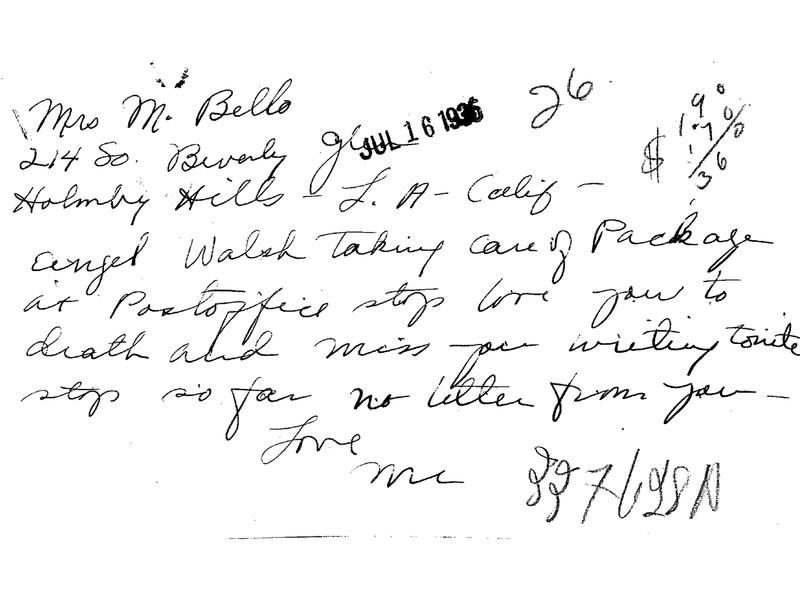 Mrs M. Bello
JUL 16 1936
26
214 So. Beverly Glen
Holmby Hills - L. A - Calif -
Angel Walsh taking care of Package
at Postoffice stop love you to
death and miss you writing tonite
stop so far no letter from you -
Love
Me